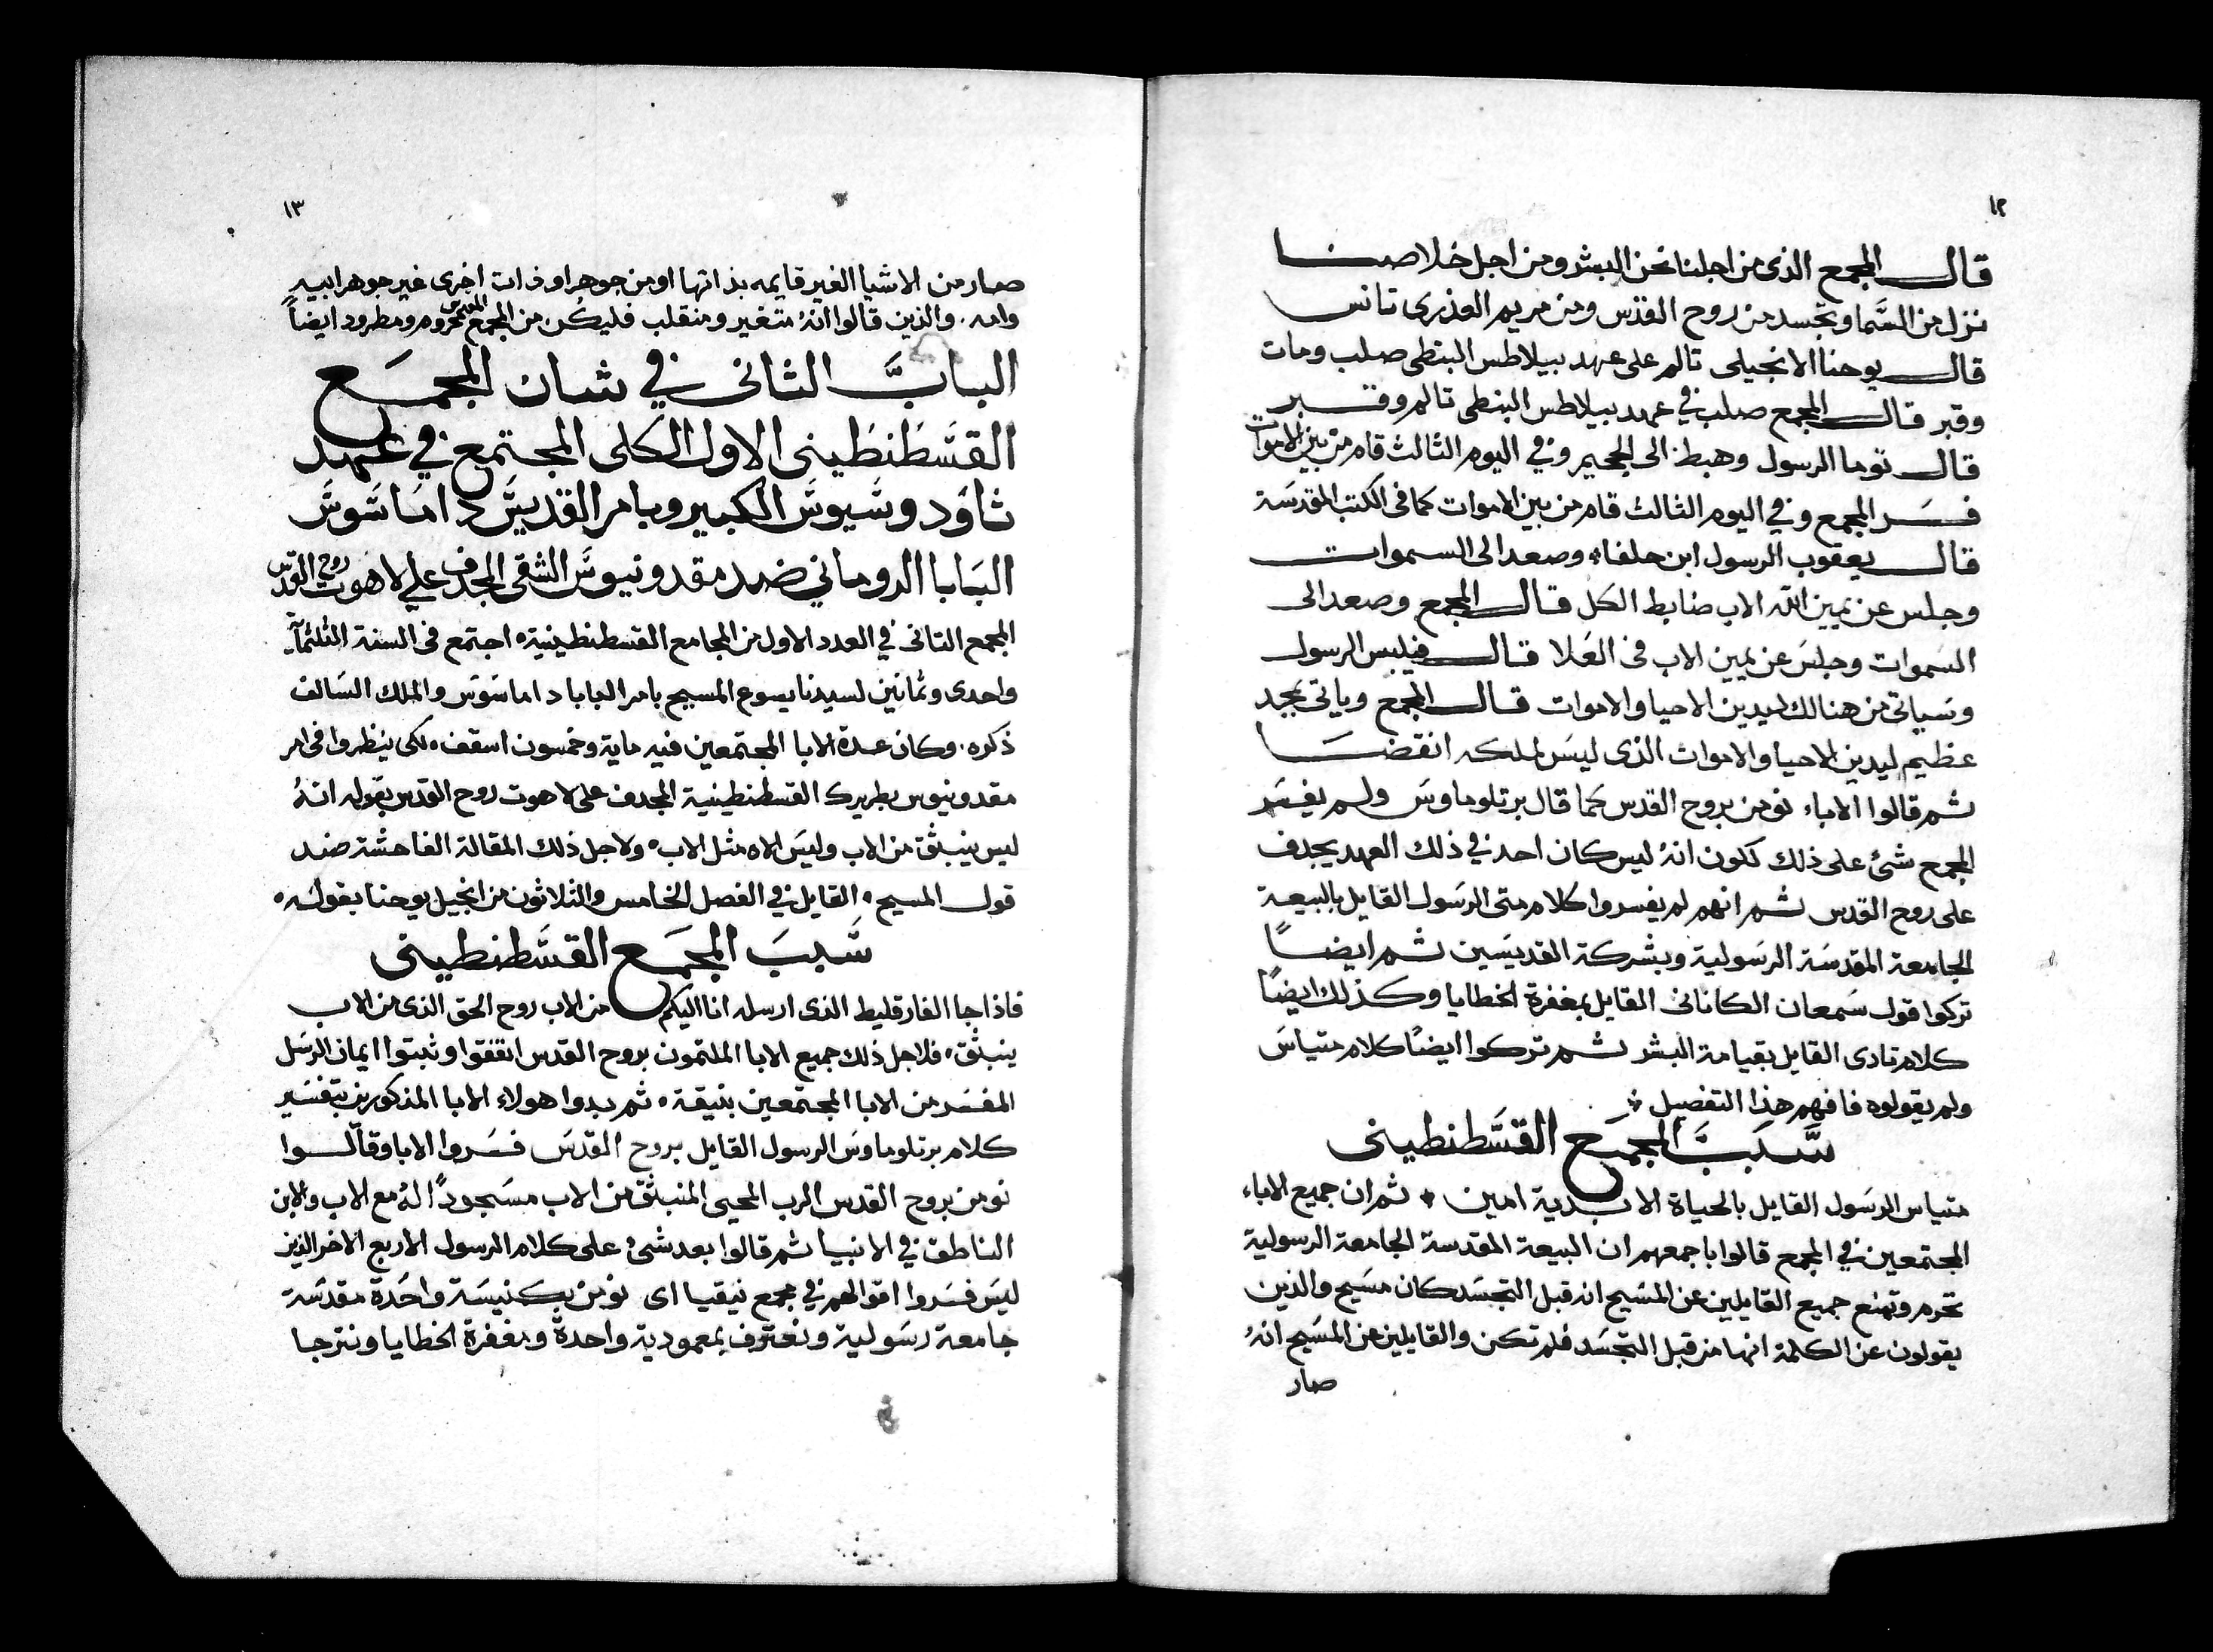 ١٢
قال المجمع الذى من اجلنا نحن البشر ومن اجل خلاصنا
نزل من السَّما وتجسد من روح القدس ومن مريم العذرى تانس
قال يوحنا الانجيلى تالم على عهد بيلاطس البنطى صلب ومات
وقبر قال المجمع صلب في عهد بيلاطس البنطى تالم وقبر
قال توما الرسول وهبط الى الجحيم وفي اليوم الثالث قام من بين الاموات
فسَر المجمع وفي اليوم الثالث قام من بين الاموات كما فى الكتب المقدسَة
قال يعقوب الرسول ابن حلفا، وصعد الى السموات
وجلس عن يمين الله الاب ضابط الكل قال المجمع وصعد الى
السَموات وجلسَ عن يمين الاب فى العَلا قال فيلبس الرسول
وسَياتى من هنالك ليدين الاحيا والاموات قال المجمع وياتى بمجد
عظيم ليدين الاحيا والاموات الذى ليسَ لملكه انقضَا
ثم قالوا الاباء نومن بروح القدس كما قال برتلوماوسَ ولم يفسَر
المجمع شئ على ذلك لكون انهُ ليس كان احد في ذلك العهد يجدف
على روح القدس ثم انهم لم يفسروا كلام متى الرسَول القايل بالبيعة
الجامعة المقدسَة الرسَولية وبشركة القديسَين ثم ايضاً
تركوا قول سَمعان الكانانى القايل بمغفرة الخطايا وكذلك ايضاً
كلام تادى القايل بقيامة البشر ثم تركوا ايضاً كلام متياسَ
ولم يقولوه فافهم هذا التفصيل
سَّبَبَّ المجمَع القسَّطنطينى
متياس الرسَول القايل بالحياة الابدية امين ثم ان جميع الاباء
المجتمعين في المجمع قالوا باجمعهم ان البيعة المقدسة الجامعة الرسولية
تحرم وتمنع جميع القايلين عن المسَيح انه قبل التجسَد كان مسَيح والذين
يقولون عن الكلمة انها من قبل التجسَد فلم تكن والقايلين من المسَيح انهُ
صار
١٣
صار من الاشيا الغير قايمه بذاتها او من جوهر او ذات اخرى غير جوهر ابيه
وامه. والذين قالوا انهُ متغير ومنقلب فليكُن من المجمع المقدس محروم ومطرود ايضاً
البابَّ الثانى في شان المجمَع
القسَّطَنطَينى الاول الكلى المجتمع في عهد
ثاوَدوسَيوسَّ الكبير وبامر القديسَّ داماسَوسَّ
البَابا الرومانى ضد مقدونيوسَّ الشقى المجدف على لاهوت روح القدس
المجمع الثانى في العدد الاول من المجامع القسطنطينية، اجتمع فى السنة الثلثماَّية
واحدى وثمانين لسيدنا يسوع المسيح بامر البابا داماسَوس والملك السَالف
ذكره. وكان عدة الابا المجتمعين فيه ماية وخمسون اسقف، لكى ينظروا فى امر
مقدونيوس بطريرك القسطنطينية المجدف على لاهوت روح القدس بقوله انهُ
ليس ينبثق من الاب وليسَ الاه مثل الاب، ولاجل ذلك المقالة الفاحشة ضد
قول المسيح، القايل في الفصل الخامس والثلاثون من انجيل يوحنا بقوله،
سَّببَ المجمَع القسَّطنطينى
فاذا جا الفارقليط الذى ارسله انا اليكم من الاب روح الحق الذى من الاب
ينبثق، فلاجل ذلك جميع الابا الملتمون بروح القدس اتفقوا وثبتوا ايمان الرسَل
المفسَر من الابا المجتمعين بنيقة، ثم بدوا هولاء الابا المذكورين بتفسَير
كلام برتلوماوسَ الرسول القايل بروح القدسَ فسَروا الابا وقالوا
نومن بروح القدس الرب المحيى المنبثق من الاب مسَجوداً لهُ مع الاب والابن
الناطق في الانبيا ثم قالوا بعد شئ على كلام الرسول الاربع الاخر الذين
ليسَ فسَروا اقوالهم في مجمع نيقيا اى نومن بكنيسَة واحَدة مقدسَة
جامعة رسَولية ونعترف بمعمودية واحدة ومغفرة الخطايا ونترجا